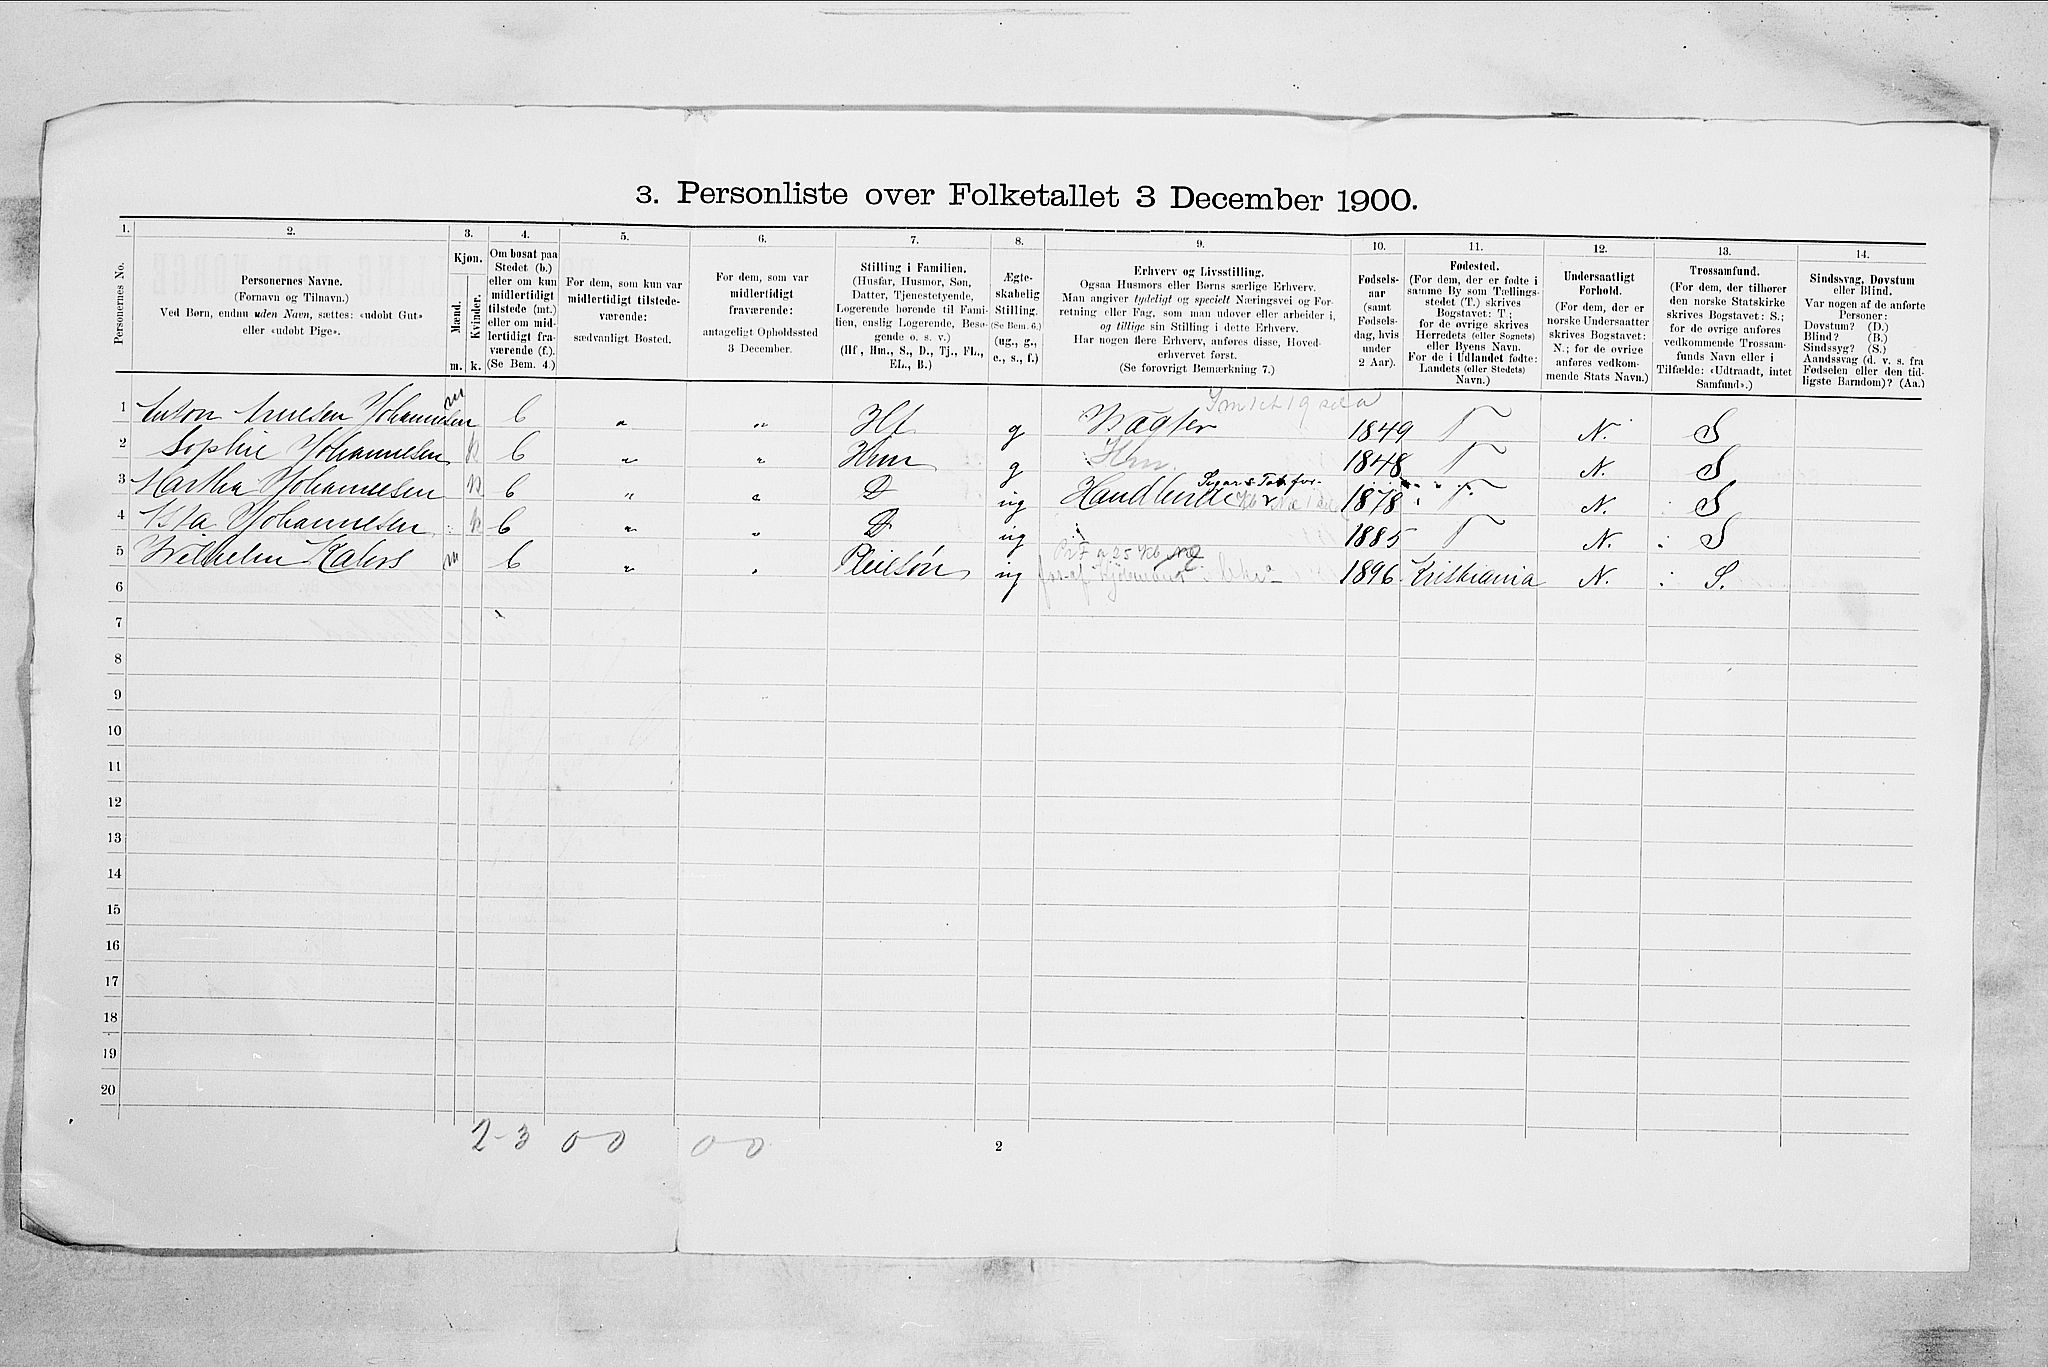 3. Personliste over Folketallet 3 December 1900.
1. 2. 3. 4. 5. 6. 7. 8. 9. 10. 11. 12. 13. 14.
Personernes No.
Personernes Navne.
(Fornavn og Tilnavn.)
Ved Børn, endnu uden Navn, sættes: «udobt Gut»
eller «udobt Pige».
Kjøn.
Mænd.
Kvinder.
m. k.
Om bosat paa
Stedet (b.)
eller om kun
midlertidigt
tilstede (mt.)
eller om mid-
lertidigt fra-
værende (f.).
(Se Bem. 4.)
For dem, som kun var
midlertidigt tilstede-
værende:
sædvanligt Bosted.
For dem, som var
midlertidigt
fraværende:
antageligt Opholdssted
3 December.
Stilling i Familien.
(Husfar, Husmor, Søn,
Datter, Tjenestetyende,
Logerende hørende til Fami-
lien, enslig Logerende, Besø-
gende o. s. v.)
(Hf, Hm., S., D., Tj., FL.,
EL., B.)
Ægte-
skabelig
Stilling.
(Se Bem. 6.)
(ug., g.,
e., s., f.)
Erhverv og Livsstilling.
Ogsaa Husmors eller Børns særlige Erhverv.
Man angiver tydeligt og specielt Næringsvei og For-
retning eller Fag, som man udover eller arbeider i,
og tillige sin Stilling i dette Erhverv.
Har nogen flere Erhverv, anføres disse, Hoved-
erhvervet først.
(Se forøvrigt Bemærkning 7.)
Fødsels-
aar
(samt
Fødsels-
dag, hvis
under
2 Aar).
Fødested.
(For dem, der er fødte i
samme By som Tællings-
stedet (T.) skrives
Bogstavet: T;
for de øvrige skrives
Herredets (eller Sognets)
eller Byens Navn.
For de i Udlandet fødte:
Landets (eller Stedets)
Navn.)
Undersaatligt
Forhold.
(For dem, der er
norske Undersaatter
skrives Bogstavet:
N.; for de øvrige
anføres vedkom-
mende Stats Navn.)
Trossamfund.
(For dem, der tilhører
den norske Statskirke
skrives Bogstavet: S.;
for de øvrige anføres
vedkommende Trossam-
funds Navn eller i
Tilfælde: «Udtraadt, intet
Samfund».)
Sindssvag, Døvstum
eller Blind.
Var nogen af de anførte
Personer:
Døvstum? (D.)
Blind? (B.)
Sindssyg? (S.)
Aandssvag (d. v. s. fra
Fødselen eller den tid-
ligste Barndom)? (Aa.)
1 Anton Johannesen m b " " Hf g Vægter 1849 T N. S
2 Sophie Johannesen k b " " Hm g Hm. 1848 T N. S
3 Martha Johannesen k b " " D ug Handlende 1878 T N. S
4 Johannesen k b " " D ug 1885 T N. S
5 Wilhelm m b " " Pleiesøn ug 1896 Kristiania N. S.
6
7
8
9
10
11
12
13
14
15
16
17
18
19
20
2-3 0-0 0-0
2